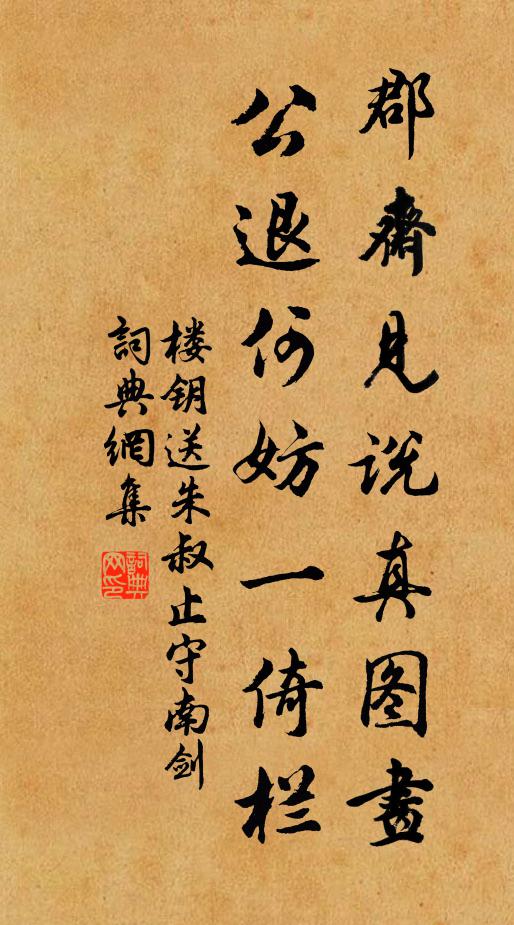 郡齋見説真图畫
公退何妨一倚栏
楼钥送朱叔止守南剑
詞典網集
詞典网印